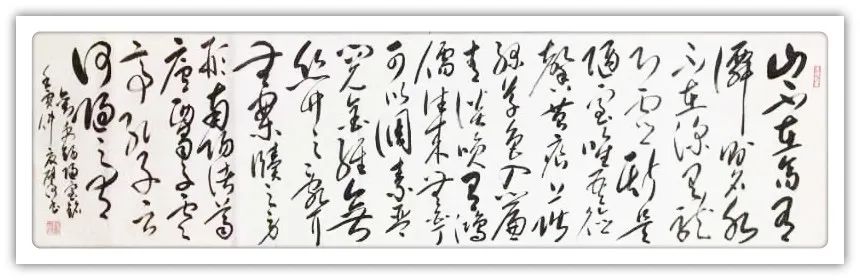 山不在高有
仙則名水
不在深有龍
則靈斯是
陋室唯吾德
馨苔痕上階
綠草色入簾
青談笑有鴻
儒往來無
可以調素琴
閱金經無
絲竹之亂耳
無案牘之勞
形南陽諸葛
廬西蜀子雲
亭孔子云
何陋之有
劉禹錫陋室銘
壬寅仲夏書